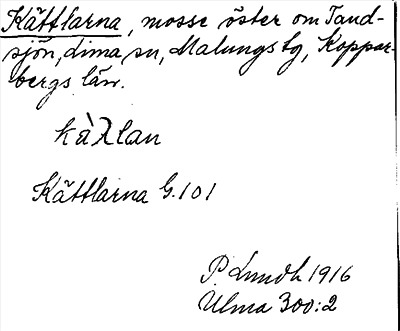 Kättlarna, mosse öster om Tand-
sjön, Lima sn, Malungs tg, Koppar-
bergs län.
kàλlan
Kättlarna G. 101
P. Lundh 1916
Ulma 300:2